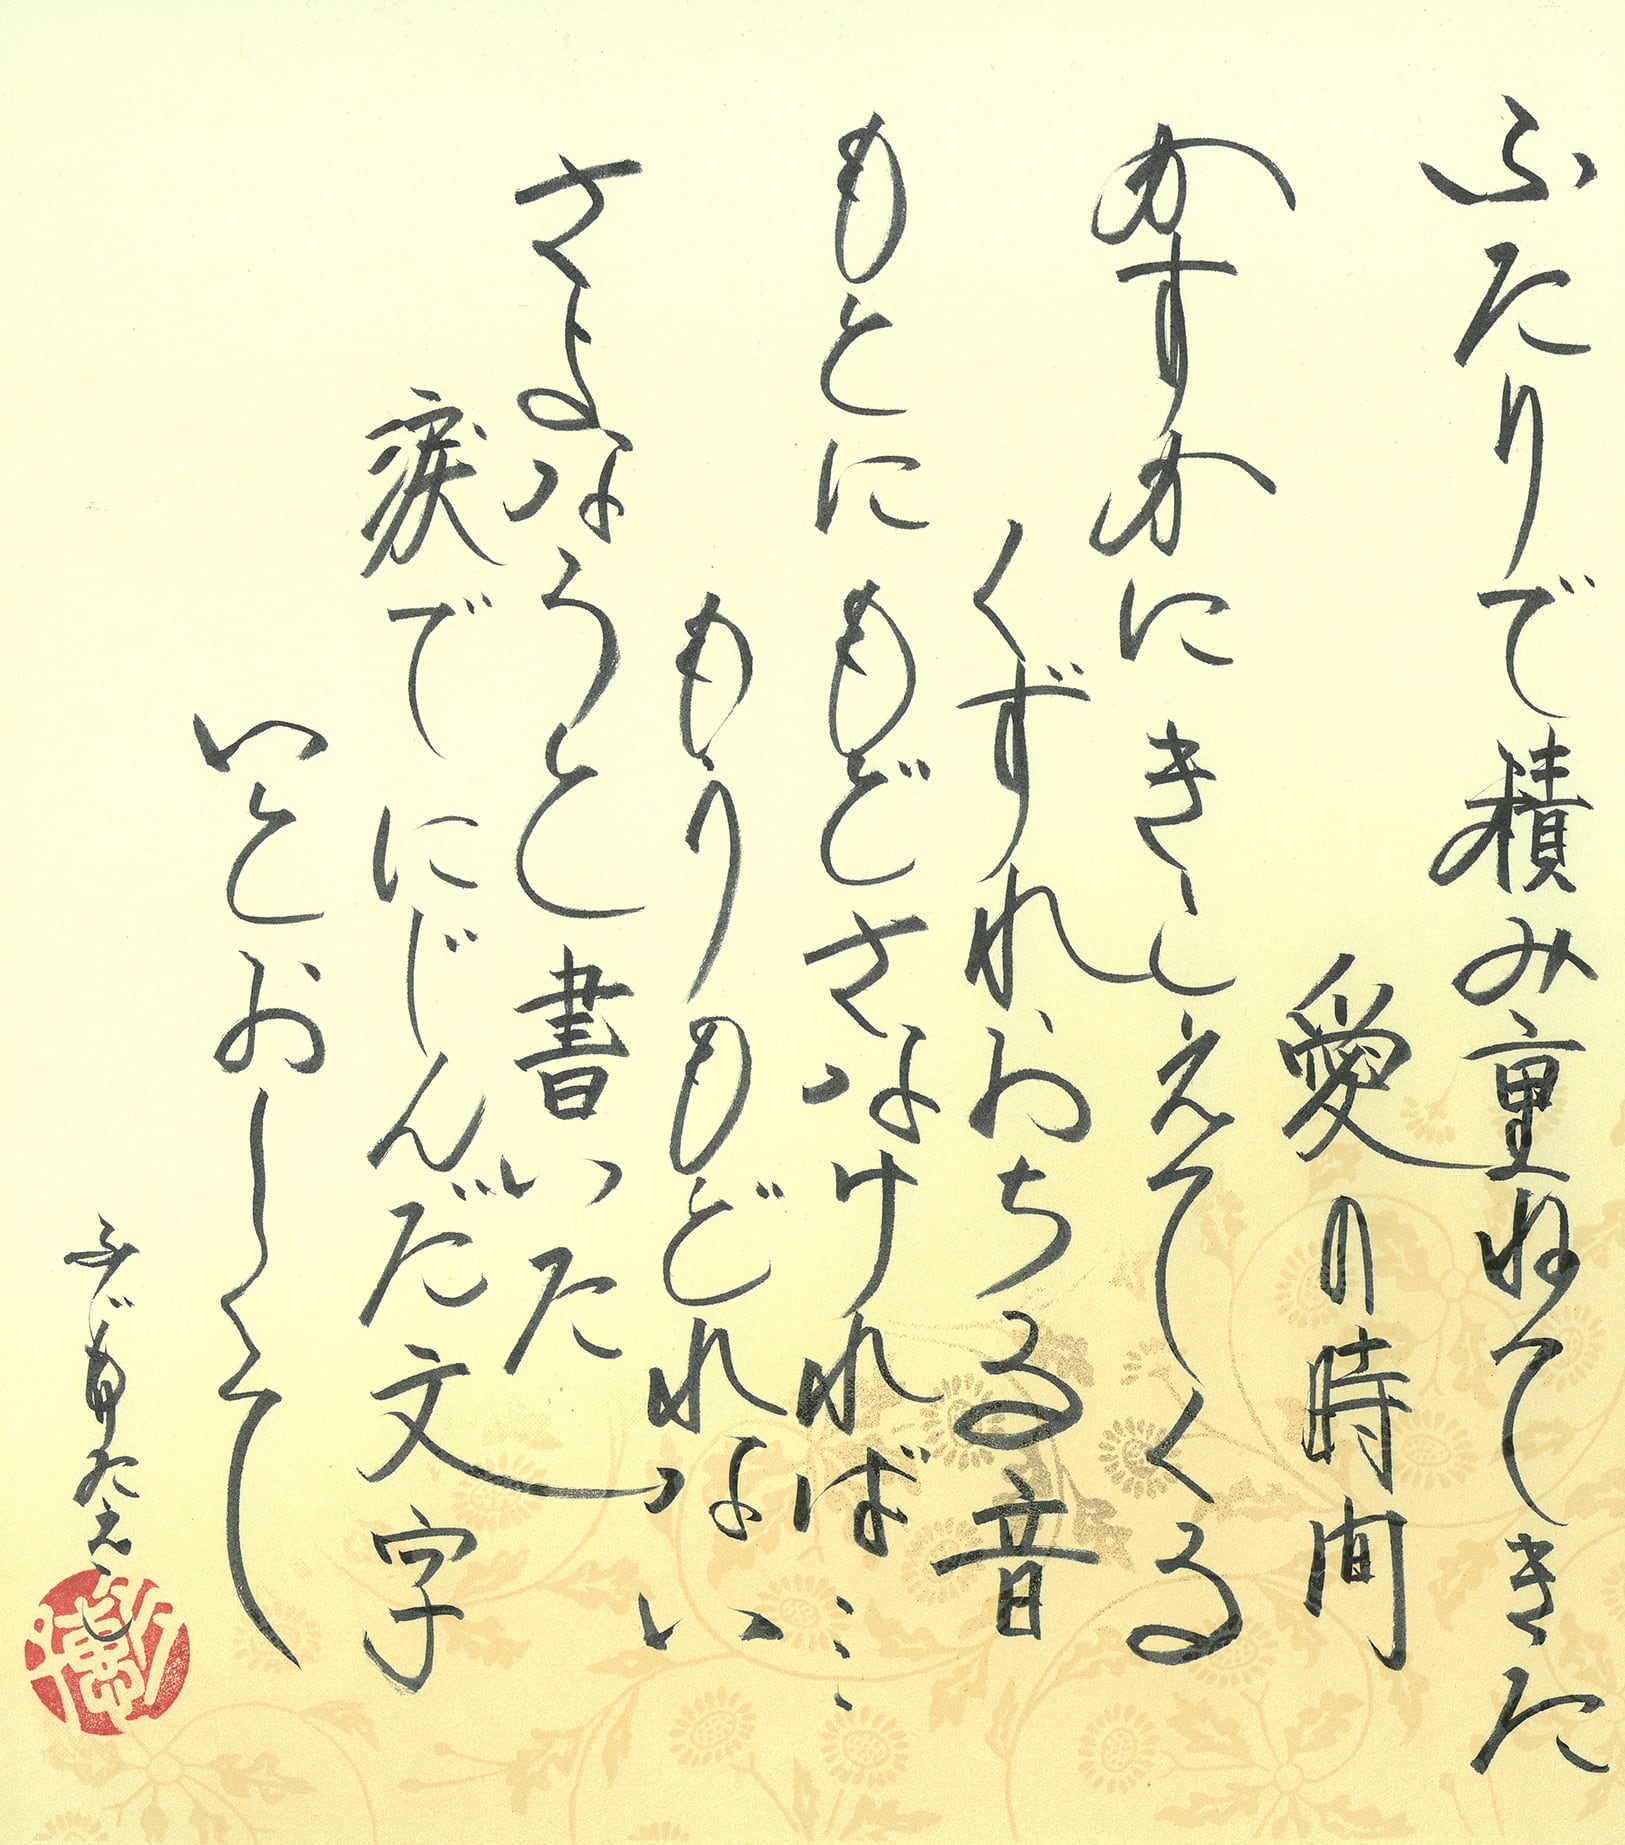 ふたりで積み重ねてきた
愛の時間
かすかにきこえてくる
くずれおちる音
もとにもどさなければ…
もうもどれない
さよならと書いた
涙でにじんだ文字
いとおしくて